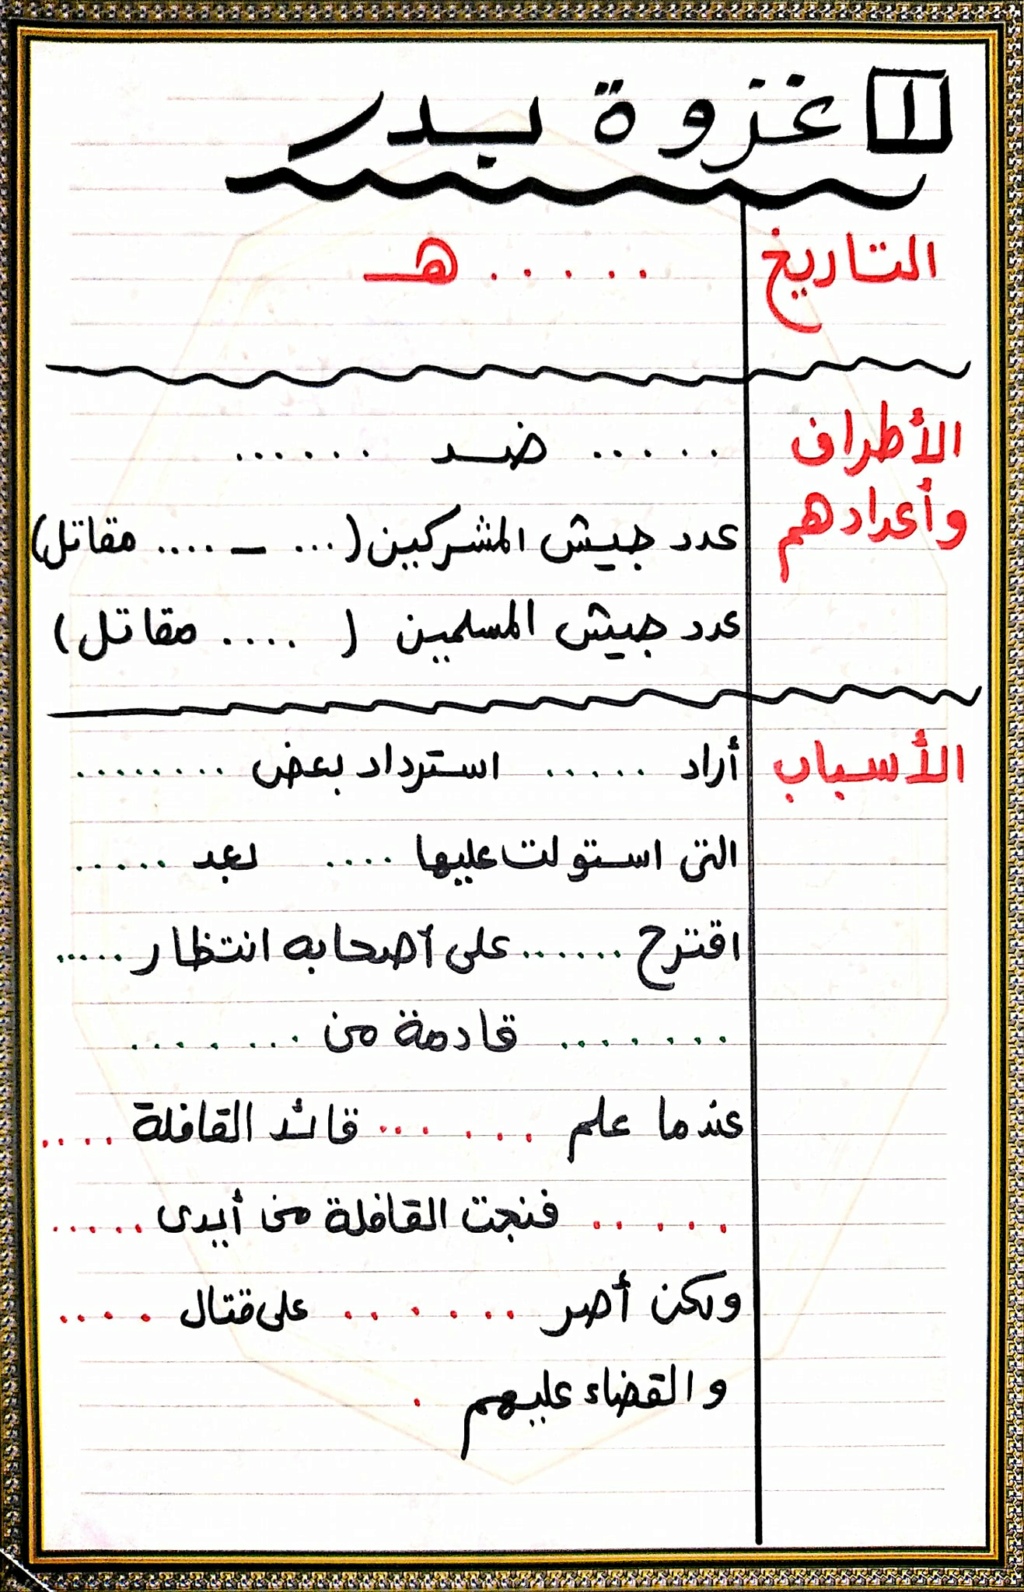 ١ غزوة بدر
التاريخ ..... هـ
الأطراف ..... ضد ......
وأعدادهم عدد جيش المشركين (... – .... مقاتل)
عدد جيش المسلمين ( .... مقاتل)
الأسباب أراد ..... استرداد بعض ........
التى استولت عليها .... بعد .....
اقترح ...... على أصحابه انتظار .....
....... قادمة من .......
عندما علم ...... قائد القافلة ....
..... فنجت القافلة من أيدى .....
ولكن أصر ...... على قتال ....
والقضاء عليهم .